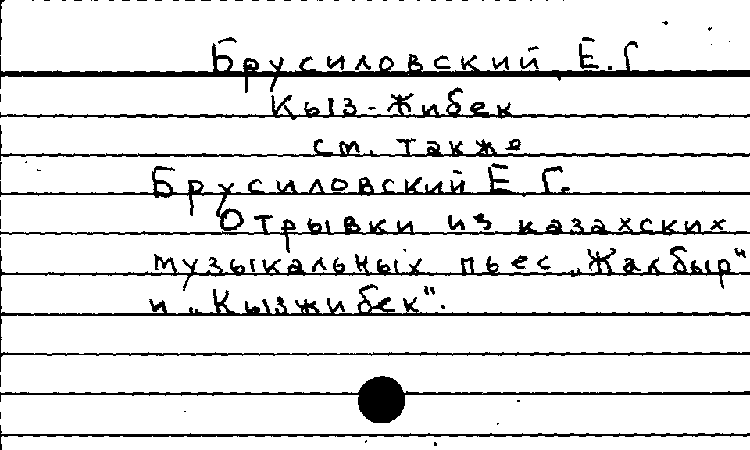 Брусиловский, Е.Г
Кыз-Жибек
см. также
Брусиловский Е.Г.
Отрывки из казахских
музыкальных пьес „Жалбыр"
и „Кызжибек".